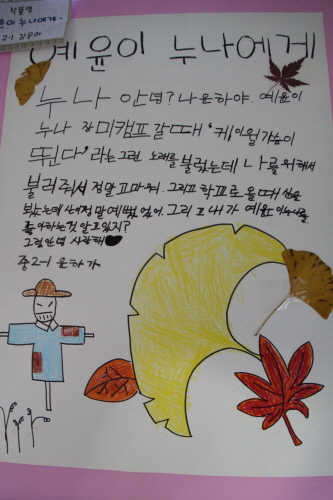 작품명
예윤이 누나에게
누나 안녕? 나 윤하야. 예윤이
누나 장미캠프 갈때 '케이월가슴이
뛴다' 라는 그런 노래를 불렀는데 나를 위해서
불러줘서 정말 고마워. 그리고 학교로 올때 산을
봤는데 산이 정말 예뻤었어. 그리고 내가 예윤이누나를
좋아하는것 알고있지?
그럼 안녕 사랑해♥
중2-1 윤하가